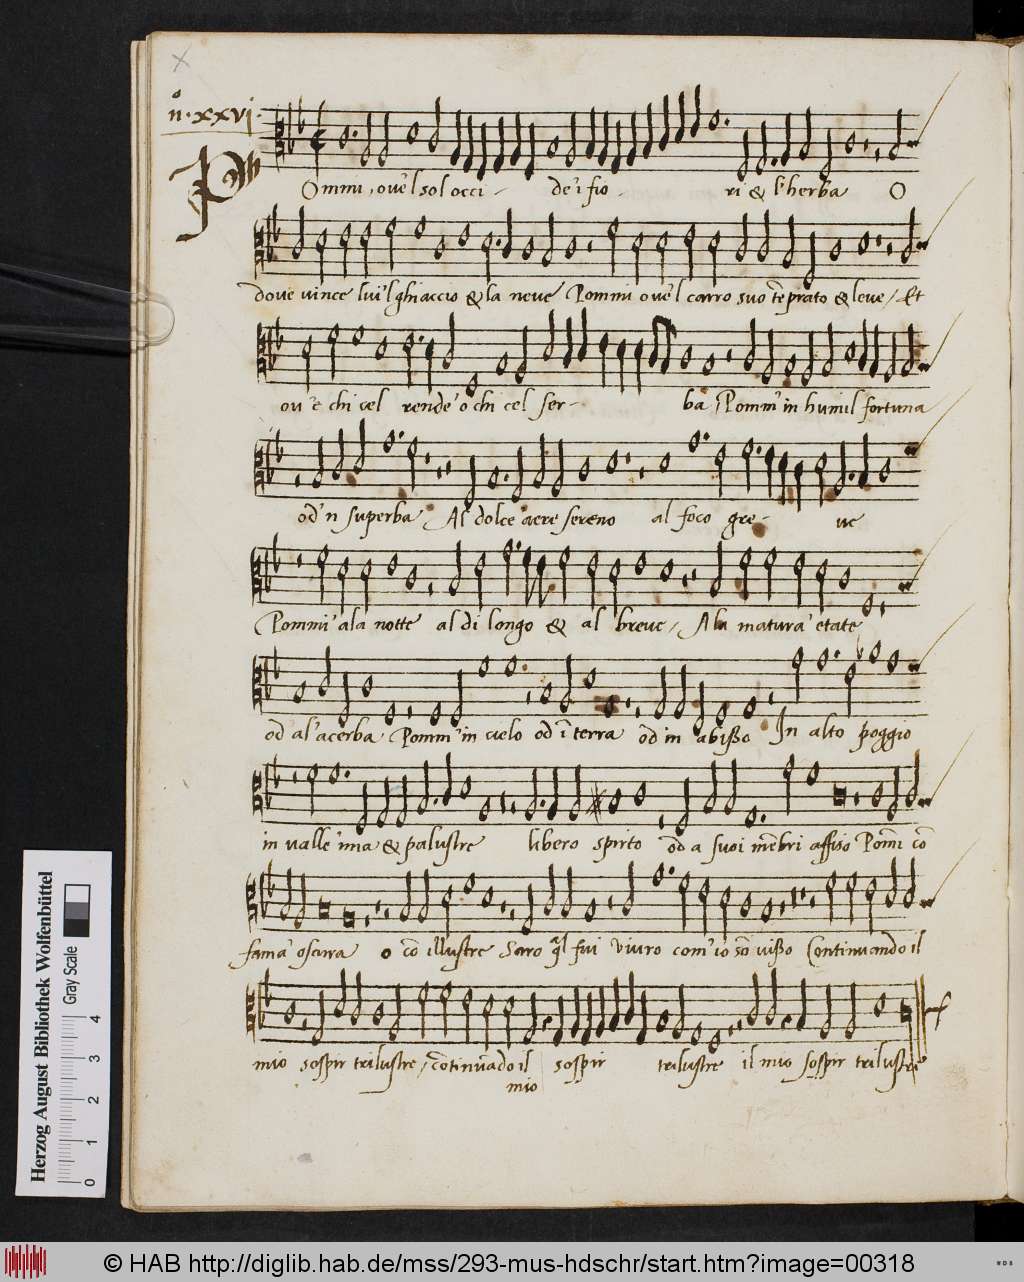 n°. xxvi.
POmmi, ove'l sol occi - de'i fio - ri & l'herba O
dove vince lui'l ghiaccio & la neve Pommi ove'l carro suo te͂prato & leve / Et
ov'e chi cel rende'o chi cel ser - ba Pomm'in humil fortuna
od'n superba Al dolce aere sereno al foco gre - ve
Pommi'ala notte al di longo & al breve / Ala matura'etate
od'al'acerba Pomm'in cielo od i͂ terra od in abisso In alto poggio
in valle'ima & palustre libero spirto od a suoi me͂bri affiso Pom͂i co͂
fama'oscura o co͂ illustre Saro q͂l fui vivro com'io so͂ visso Continuando il
mio sospir trilustre / co͂tinua͂do il sospir trilustre il mio sospir trilustre
mio
Herzog August Bibliothek Wolfenbüttel
Gray Scale
0 1 2 3 4
© HAB http://diglib.hab.de/mss/293-mus-hdschr/start.htm?image=00318